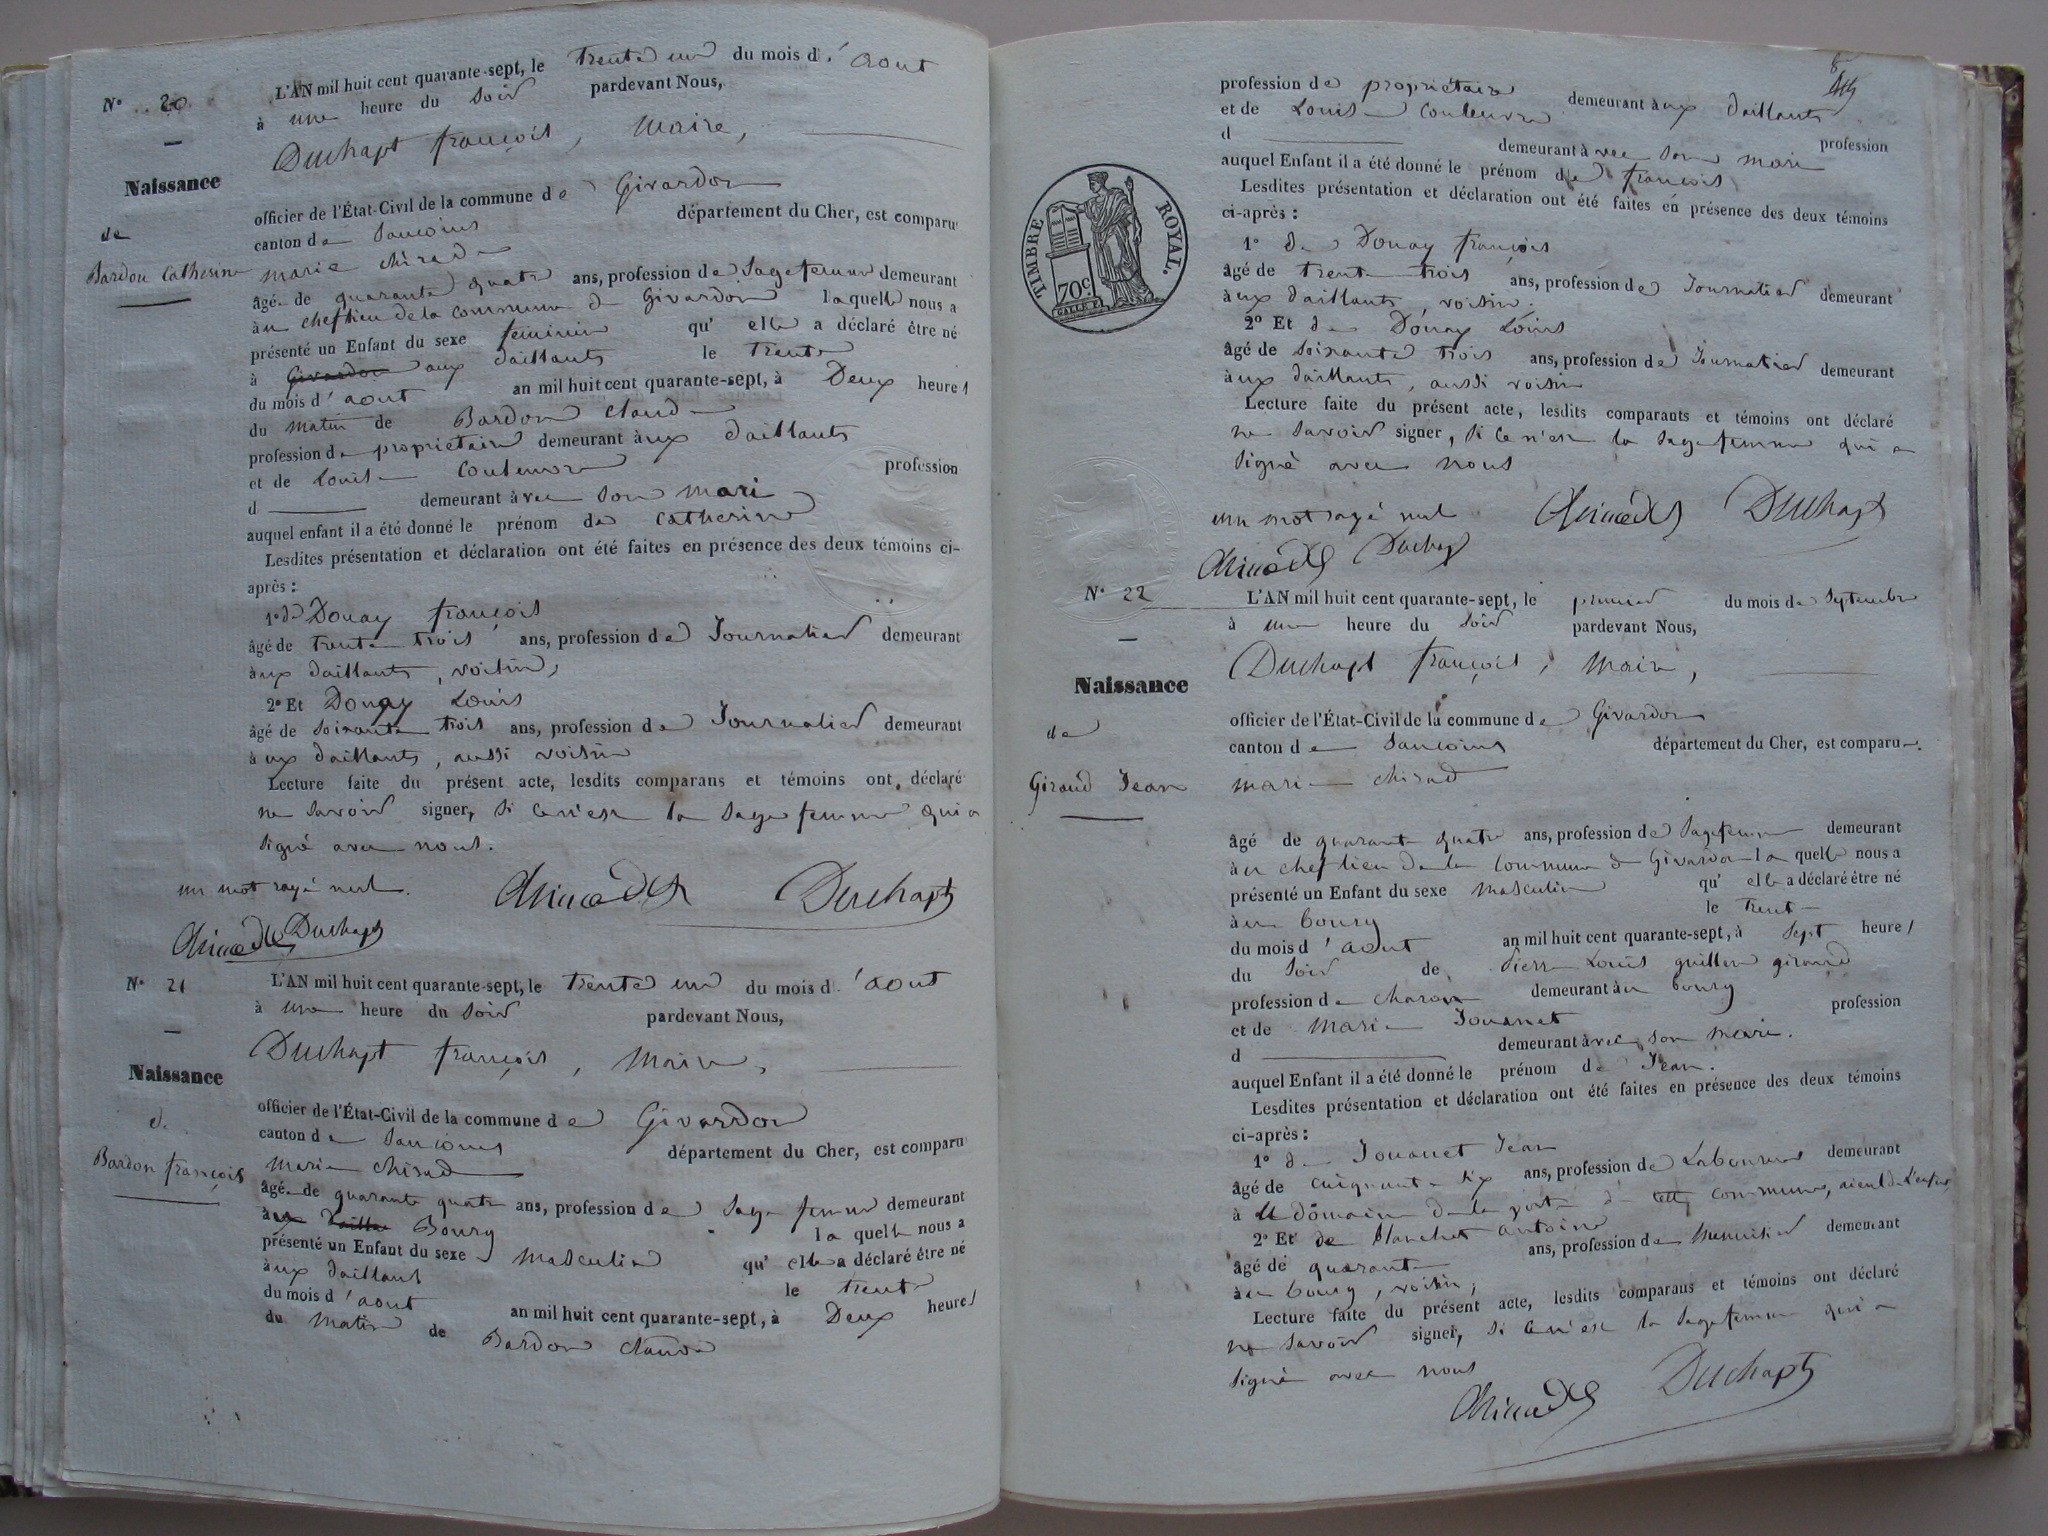 N° 20
Naissance
de
Bardon Catherine
L'AN mil huit cent quarante-sept, le trente un du mois d'aout
à une heure du soir pardevant Nous,
Duchapt françois, Maire,
officier de l'État-Civil de la commune de Givardon
canton de Sancoins département du Cher, est comparu
marie chirade
âgé de quarante quatre ans, profession de Sagefemme demeurant
au cheflieu de la commune de Givardon laquelle nous a
présenté un Enfant du sexe feminin qu' elle a déclaré être né
à Givardon aux daillants le trente
du mois d'aout an mil huit cent quarante-sept, à Deux heures
du matin de Bardon claude
profession de propriétaire demeurant aux daillants
et de Louise Couleuvre profession
d demeurant avec son mari
auquel enfant il a été donné le prénom de catherine
Lesdites présentation et déclaration ont été faites en présence des deux témoins ci-
après :
1° de Douay françois
âgé de trente trois ans, profession de Journalier demeurant
aux daillants, voisin,
2° Et Douay Louis
âgé de soixante trois ans, profession de Journalier demeurant
aux daillants, aussi voisin
Lecture faite du présent acte, lesdits comparans et témoins ont déclaré
ne savoir signer, si ce n'est la sage femme qui a
signé avec nous.
un mot rayé nul. Duchapt
Duchapt
N° 21
Naissance
de
Bardon françois
L'AN mil huit cent quarante-sept, le trente un du mois d'aout
à une heure du soir pardevant Nous,
Duchapt françois, Maire,
officier de l'État-Civil de la commune de Givardon
canton de Sancoins département du Cher, est comparu
marie chirade
âgé de quarante quatre ans, profession de Sage femme demeurant
au Bourg laquelle nous a
présenté un Enfant du sexe masculin qu' elle a déclaré être né
aux daillant le trente
du mois d'aout an mil huit cent quarante-sept, à Deux heures
du matin de Bardon claude
profession de propriétaire demeurant aux daillants
et de Louise Couleuvre profession
d demeurant avec son mari
auquel Enfant il a été donné le prénom de françois
Lesdites présentation et déclaration ont été faites en présence des deux témoins
ci-après :
1° de Douay françois
âgé de trente trois ans, profession de Journalier demeurant
aux daillants, voisin.
2° Et de Douay Louis
âgé de soixante trois ans, profession de Journalier demeurant
aux daillants, aussi voisin
Lecture faite du présent acte, lesdits comparants et témoins ont déclaré
ne savoir signer, si ce n'est la sagefemme qui a
signé avec nous
un mot rayé nul Duchapt
Duchapt
TIMBRE ROYAL.
70c
N° 22
Naissance
de
Giraud Jean
L'AN mil huit cent quarante-sept, le premier du mois de Septembre
à une heure du soir pardevant Nous,
Duchapt françois, Maire,
officier de l'État-Civil de la commune de Givardon
canton de Sancoins département du Cher, est comparu
marie chirade
âgé de quarante quatre ans, profession de Sagefemme demeurant
au chef lieu de la commune de Givardon laquelle nous a
présenté un Enfant du sexe masculin qu' elle a déclaré être né
au bourg le trente
du mois d'aout an mil huit cent quarante-sept, à sept heures
du soir de Pierre Louis guillaume giraud
profession de charon demeurant au bourg
et de Marie Jouanet profession
d demeurant avec son mari.
auquel Enfant il a été donné le prénom de Jean.
Lesdites présentation et déclaration ont été faites en présence des deux témoins
ci-après :
1° de Jouanet Jean
âgé de cinquante six ans, profession de Laboureur demeurant
à le domaine de la porte de cette commune, aieul de L'enfant
2° Et de Blanchet antoine
âgé de quarante ans, profession de menuisier demeurant
au bourg, voisin,
Lecture faite du présent acte, lesdits comparans et témoins ont déclaré
ne savoir signer, si ce n'est la sagefemme qui a
signé avec nous
Duchapt